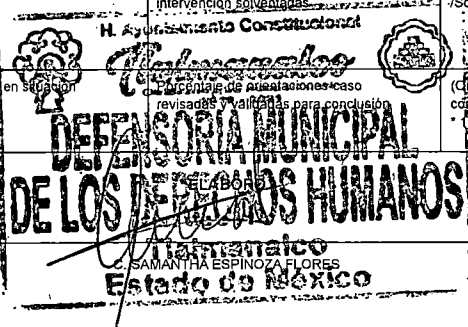 intervención solventadas
H. Ayuntamiento Constitucional
Tlalmanalco
en situación
Porcentaje de orientaciones caso
revisadas y validadas para conclusión
DEFENSORIA MUNICIPAL
DE LOS DERECHOS HUMANOS
ELABORÓ
Tlalmanalco
C. SAMANTHA ESPINOZA FLORES
Estado de México